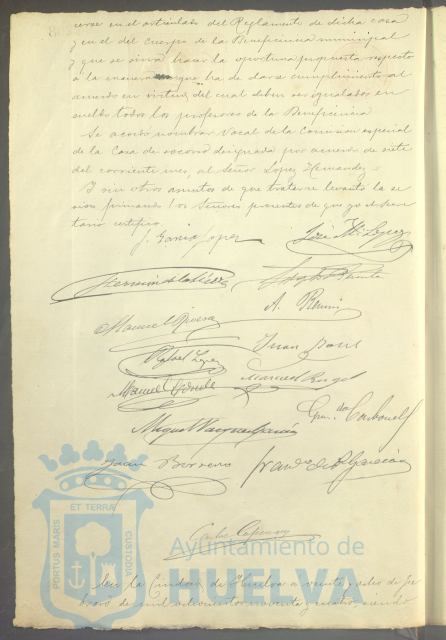 cerse en el articulado del Reglamento de dicha casa
y en el del cuerpo de la Beneficencia municipal
y que se sirva hacer la oportuna propuesta respecto
a la manera que ha de darse cumplimiento al
acuerdo en virtud del cual deben ser igualados en
sueldo todos los profesores de la Beneficencia
Se acordó nombrar Vocal de la Comision especial
de la Casa de socorro designada por acuerdo de siete
del corriente mes, al Señor Lopez Hernandez
Y sin otros asuntos de que tratar se levantó la se
sion firmando los Señores presentes de que yo el Secre
tario certifico
J. Garcia Lopez
José Mª Lopez
A.
Manuel
Juan
Rafael Lopez
Manuel
Manuel
Carbonell
Miguel Vazquez Garcia
Juan Borrero
Franco de P. Garcia
ET TERRA
PORTUS MARIS
CUSTODIA
Ayuntamiento de
HUELVA
En la Ciudad de Huelva a veinte y ocho de Fe
brero de mil ochocientos noventa y cuatro, siendo